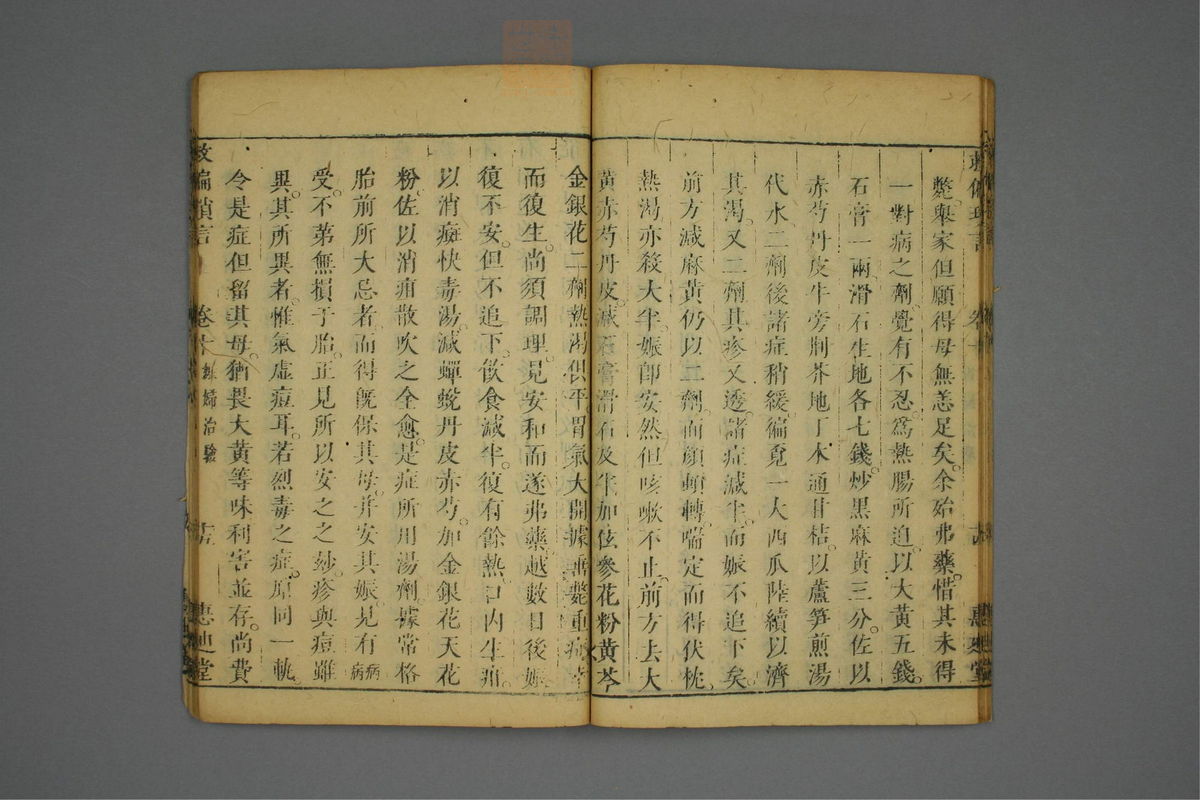 斃舉家但願得母無恙足矣余始弗藥惜其未得
一對病之劑覺有不忍爲熱腸所迫以大黃五錢
石膏一兩滑石生地各七錢炒黑麻黃三分佐以
赤芍丹皮牛旁荊芥地丁木通甘桔以蘆笋煎湯
代水二劑後諸症稍緩徧覓一大西瓜陸續以濟
其渴又二劑其疹又透諸症減半而娠不追下矣
前方減麻黃仍以二劑而顏頓轉喘定而得伏枕
熱渴亦殺大半娠卽安然但咳嗽不止前方去大
黃赤芍丹皮減石膏滑石及半加伭參花粉黃芩
金銀花二劑熱渴俱平胃氣大開據垂斃重症幸
而復生尚須調理見安和而遂弗藥越數日後娠
復不安但不追下飲食減半復有餘熱口內生疳
以消癍快毒湯減蟬蛻丹皮赤芍加金銀花天花
粉佐以消疳散吹之全愈是症所用湯劑據常格
胎前所大忌者而得旣保其母并安其娠見有病病
受不第無損于胎正見所以安之之玅疹與痘雖
異其所異者惟氣虛痘耳若烈毒之症原同一軌
令是症但留其母猶畏大黃等味利害並存尚費
救偏瑣言 卷十 娠婦治驗 十五 惠迪堂